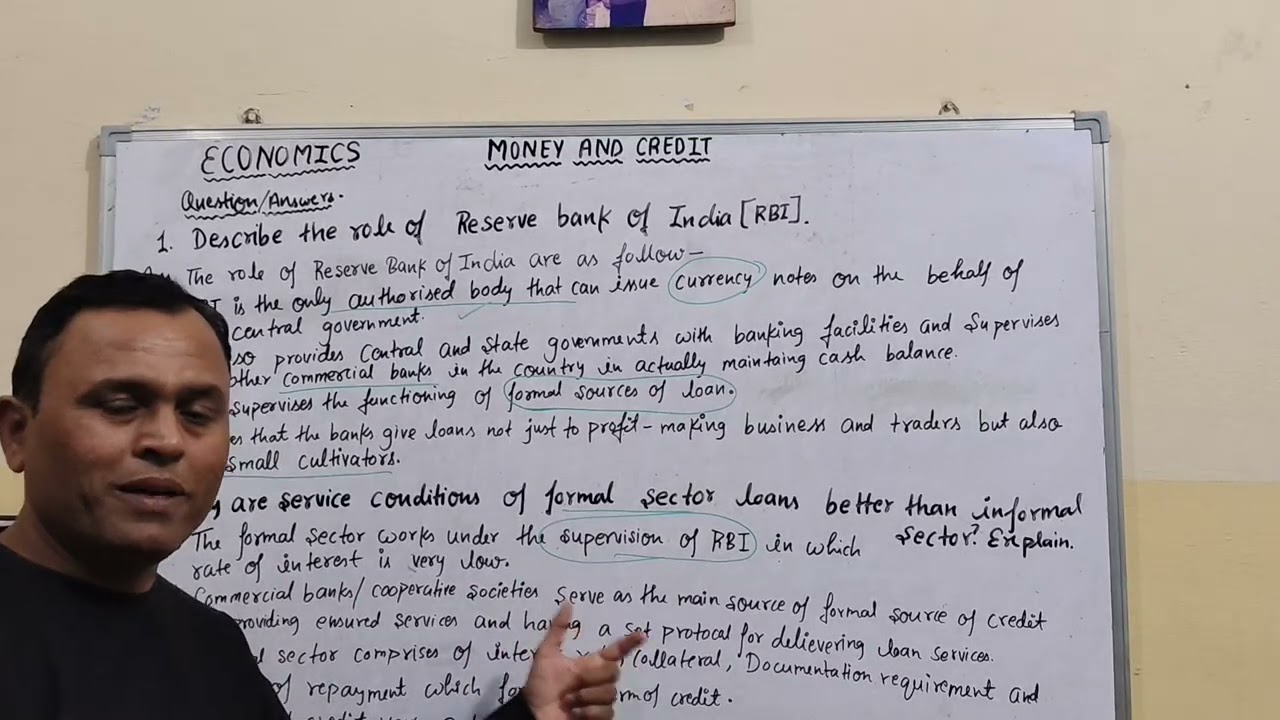 ECONOMICS
MONEY AND CREDIT
Question/Answers.
1. Describe the role of Reserve bank of India [RBI].
The role of Reserve Bank of India are as follow-
is the only authorised body that can issue currency notes on the behalf of
central government.
provides Central and State governments with banking facilities and Supervises
other commercial banks in the country in actually maintaing cash balance.
supervises the functioning of formal sources of loan.
that the banks give loans not just to profit-making business and traders but also
small cultivators.
are service conditions of formal sector loans better than informal
sector? Explain.
The formal sector works under the supervision of RBI in which
rate of interest is very low.
Commercial banks/cooperative societies serve as the main source of formal source of credit
providing ensured services and having a set protocal for delievering loan services.
sector comprises of Collateral, Documentation requirement and
of repayment which of credit.